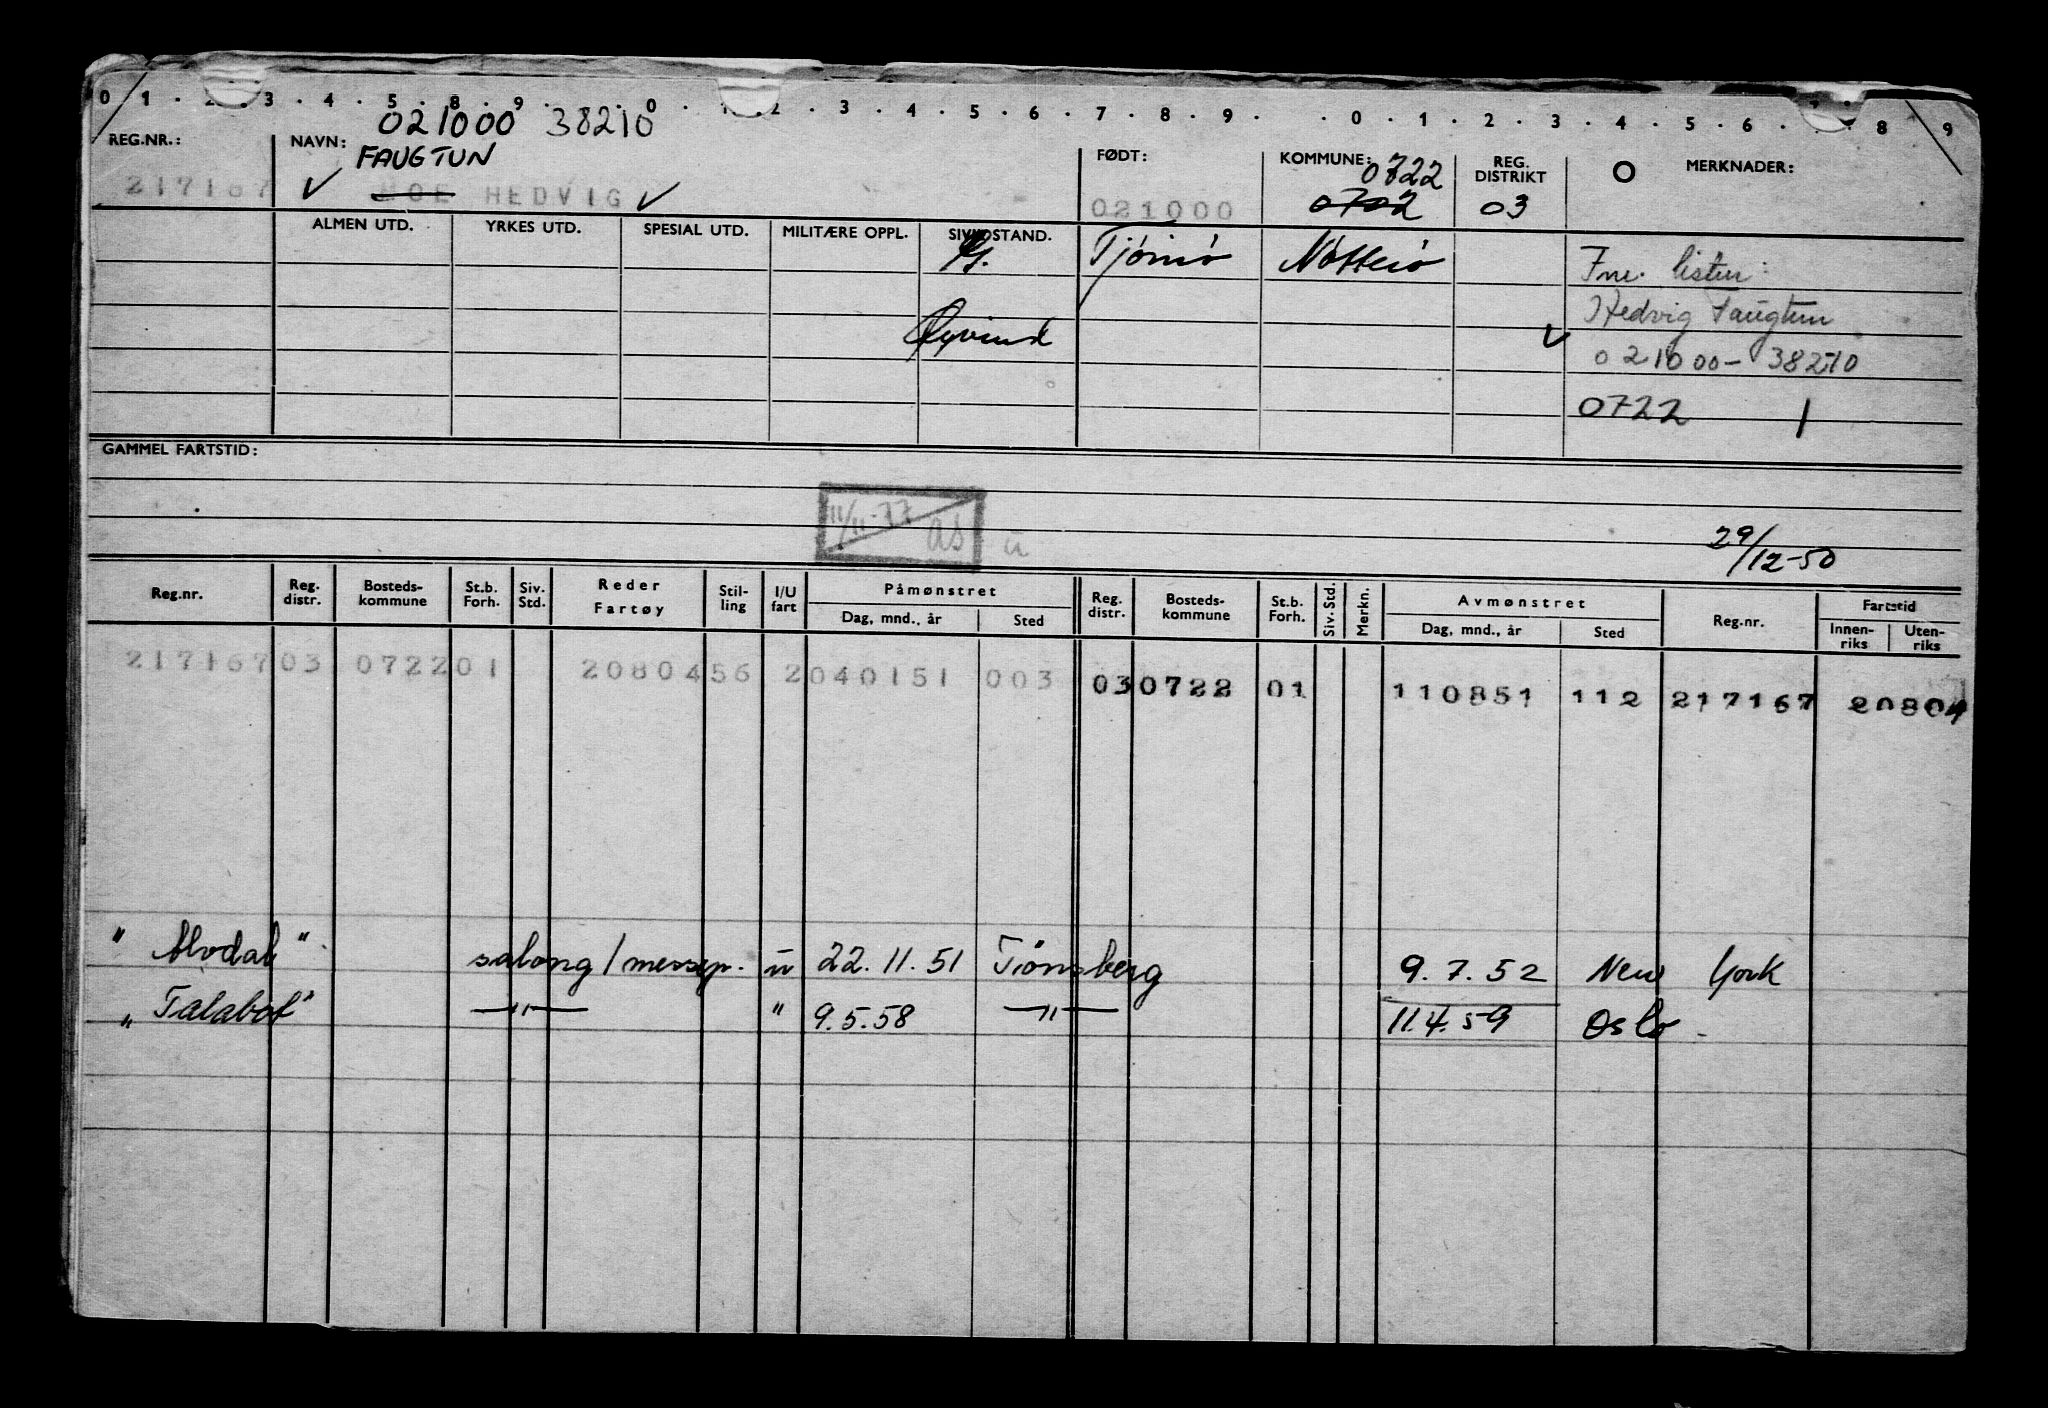 0 1 . 2 . 3 . 4 . 5 . 8 . 9 . . 0 . 1 . 2 . 3 . 4 . 5 . 6 . 7 . 8 . 9 . . 0 . 1 . 2 . 3 . 4 . 5 . 6 . . 8 9
021000 38210
REG.NR.: NAVN: FØDT: KOMMUNE: REG. DISTRIKT O MERKNADER:
FAUGTUN 0722
217167 MOE HEDVIG 021000 0702 03
ALMEN UTD. YRKES UTD. SPESIAL UTD. MILITÆRE OPPL. SIVILSTAND.
G. Tjømø Nøtterø Fnr. listen:
Øyvind Hedvig Faugtun
021000-38210
0722 1
GAMMEL FARTSTID:
11/11-77 as u
29/12-50
Reg.nr. Reg. distr. Bosteds-kommune St.b. Forh. Siv. Std. Reder Fartøy Stil-ling I/U fart Påmønstret Dag, mnd., år Sted Reg. distr. Bosteds-kommune St.b. Forh. Siv. Std. Merkn. Avmønstret Dag, mnd., år Sted Reg.nr. Fartstid Innen-riks Uten-riks
217167 03 0722 01 20804 56 2 040151 003 03 0722 01 110851 112 217167 20804
" Alvdal " salong/messep. u 22.11.51 Tønsberg 9.7.52 New York
" Talabot " —"— " 9.5.58 —"— 11.4.59 Oslo